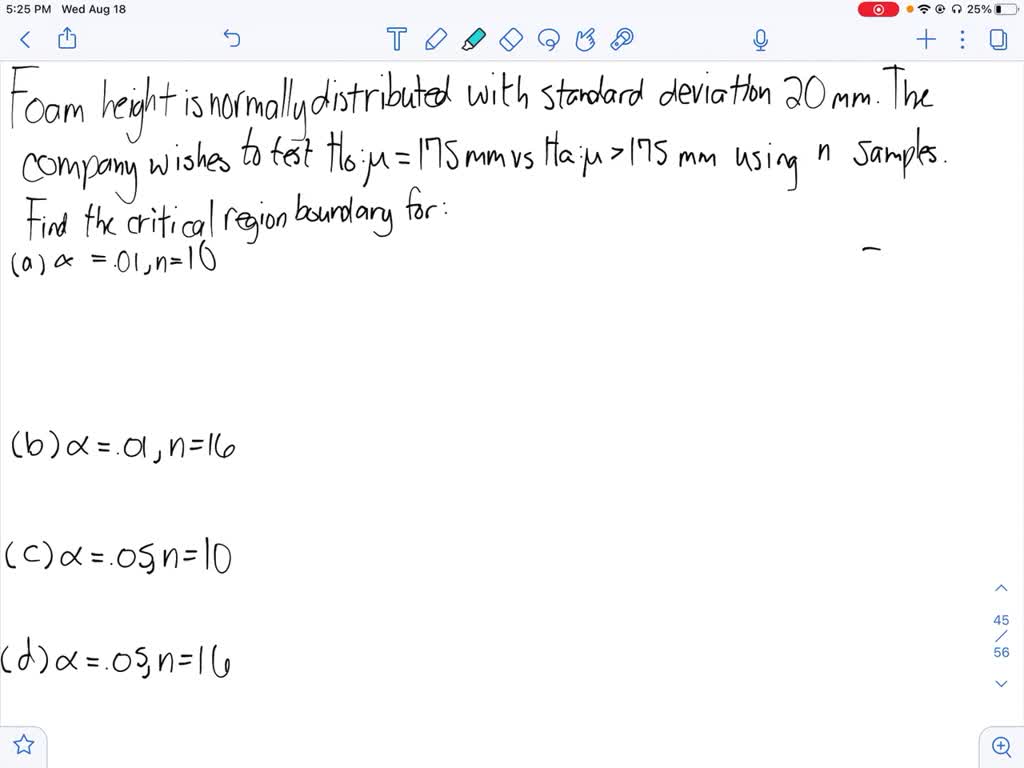 5:25 PM Wed Aug 18
25%
T
Foam height is normally distributed with standard deviation 20 mm. The
company wishes to test H0: μ = 175 mm vs Ha: μ > 175 mm using n samples.
Find the critical region boundary for:
(a) α = .01, n=10
(b) α = .01, n=16
(c) α = .05, n=10
(d) α = .05, n=16
45
/
56